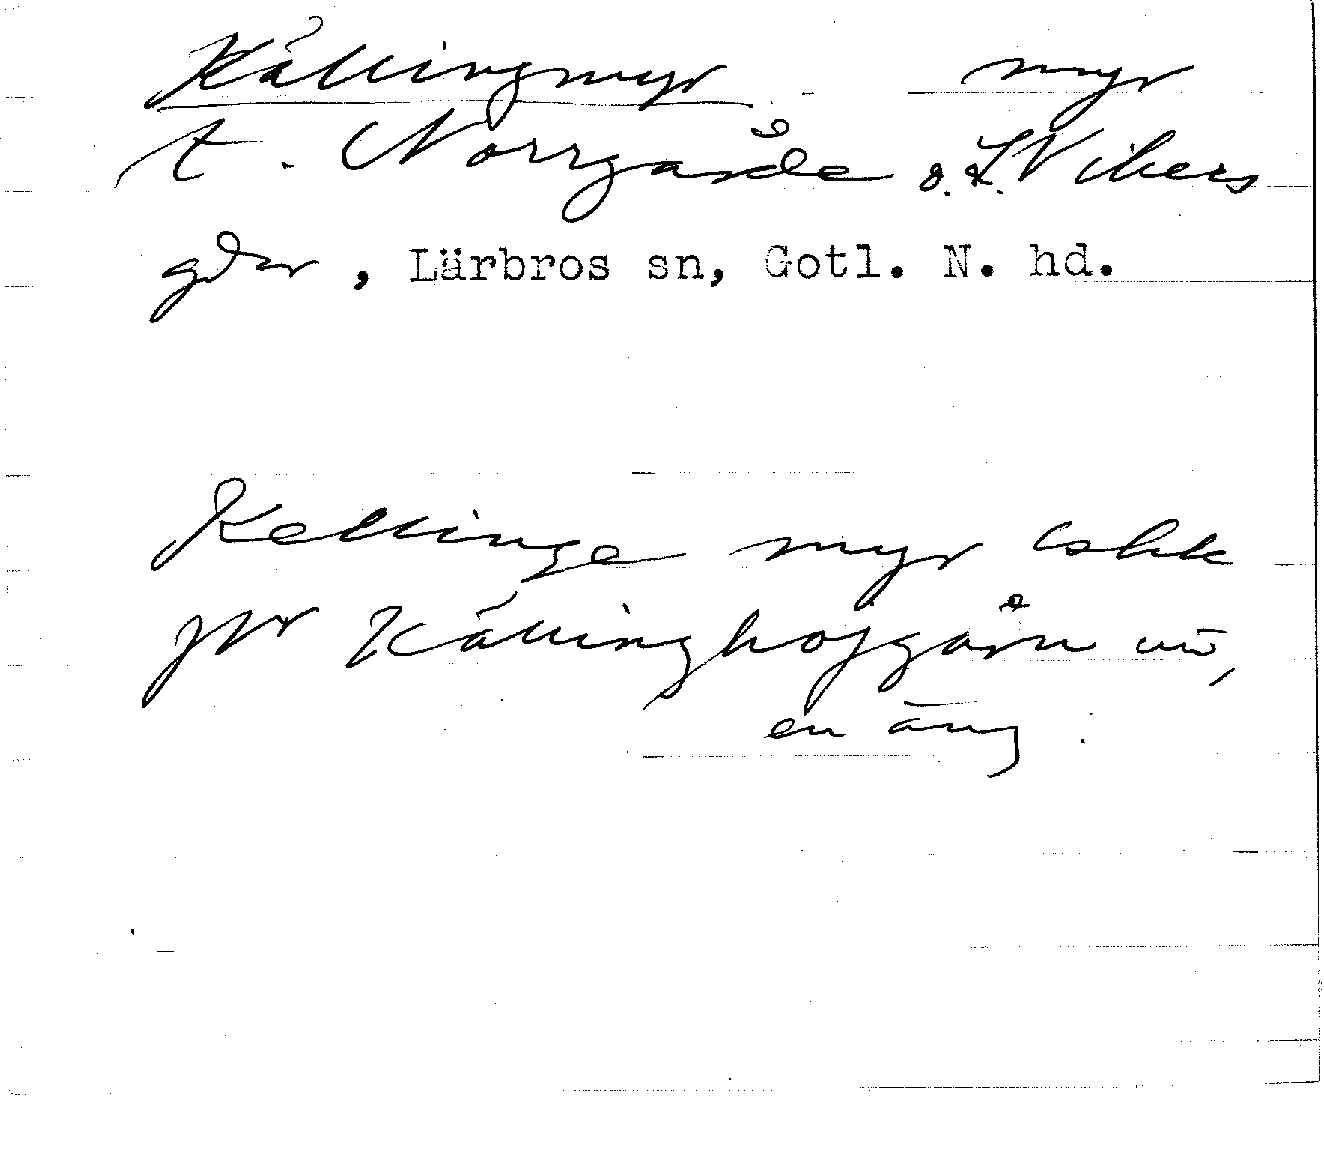 Källingmyr myr
t. Norrgårde o. L. Vikers
gdar, Lärbros sn, Gotl. N. hd.
Kellinge myr
Källinghofgårn
en äng.